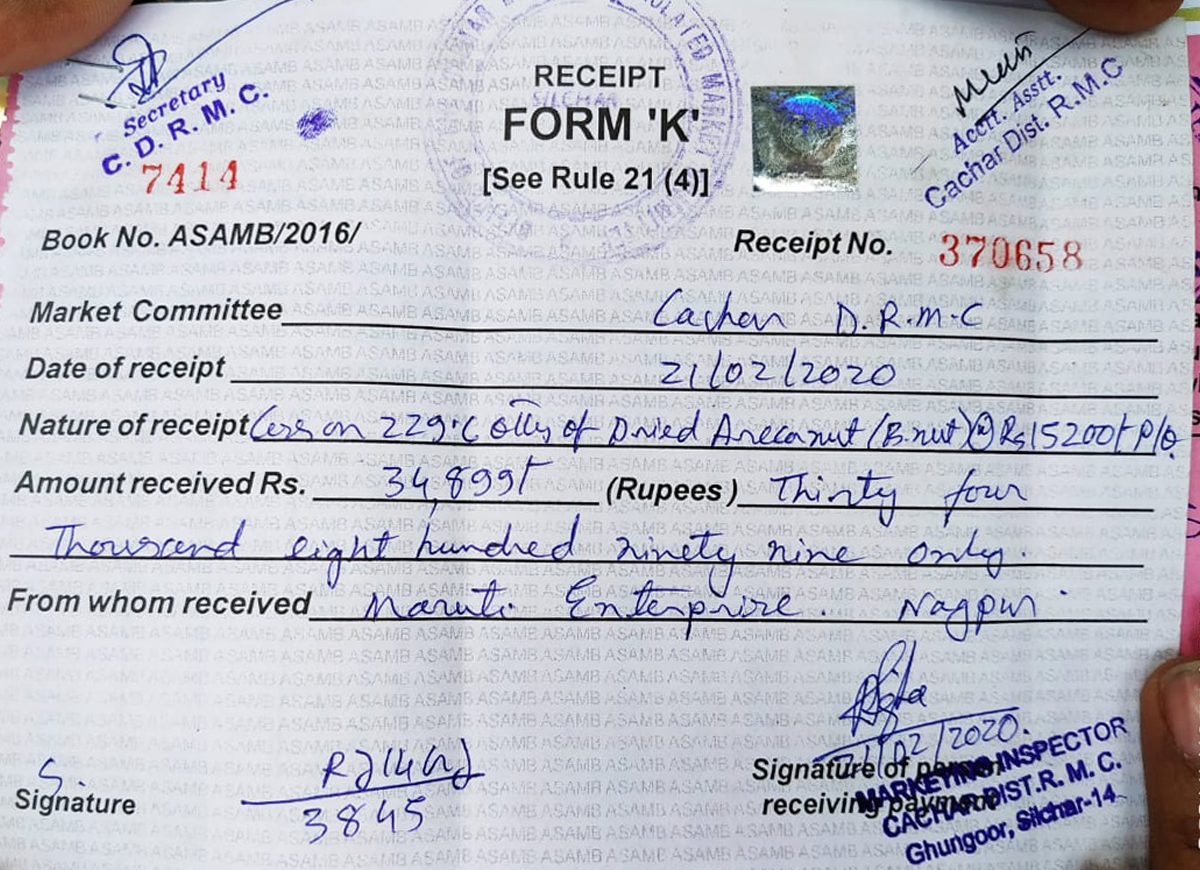 Secretary
C. D. R. M. C.
7414
RECEIPT
SILCHAR
FORM 'K'
[See Rule 21 (4)]
Acctt. Asstt.
Cachar Dist. R.M.C
Book No. ASAMB/2016/
Receipt No. 370658
Market Committee Cachar D.R.M.C
Date of receipt 21/02/2020
Nature of receipt Cess on 229.6 Qtls of Dried Arecanut (B.nut) @ Rs 15200/- P/Q.
Amount received Rs. 34,899/- (Rupees) Thirty four
Thousand eight hundred ninety nine only
From whom received Maruti Enterprise. Nagpur
21/02/2020.
Signature of person
receiving payment
MARKETING INSPECTOR
CACHAR DIST. R. M. C.
Ghungoor, Silchar-14
Signature
3845